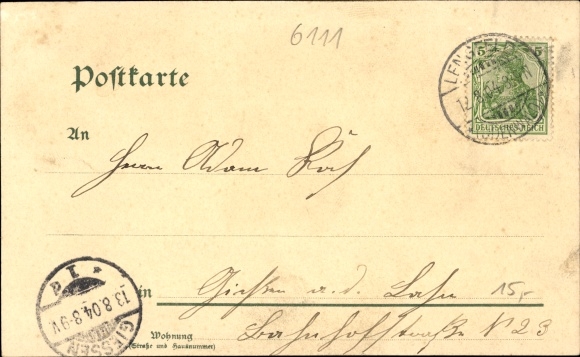 6111
Postkarte
5 5
DEUTSCHES REICH
LENGFELD
12.8.04
An
Herrn Adam
in Gießen a. d. Lahn
15,-
Wohnung
(Straße und Hausnummer)
Bahnhofstraße N 23
GIESSEN
13.8.04.8-9V.